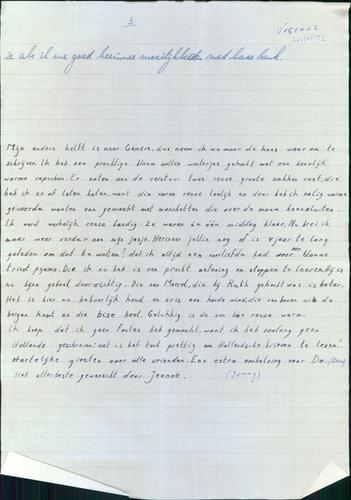 3
ze als ik me goed herinner moeilijkheden met haar bank.
Mijn andere helft is naar Genève, dus neem ik nu maar de kans waar om te
schrijven. Ik heb een prachtige blauw wollen winterjas gekocht met een heerlijk
warme capuchon. Er zaten aan de ceintuur twee reuze groote zakken vast, die
heb ik er af laten halen, want die waren reuze leelijk en daar heb ik nodig warme
gevoerde wanten van gemaakt met manchetten die over de mouw heensluiten.
Ik word werkelijk reuze handig. Ze waren in één middag klaar. Nu brei ik
maar weer verder aan mijn jasje. Herinner jullie nog of is 't jaar te lang
geleden om dat te weten? dat ik altijd een voorliefde had voor een blauwe
tricot pyama. Die ik nu heb is een pracht oefening om stoppen te leeren. Hij is
nu bijna geheel doorzichtig. Die van Marcel, die bij Ruth gekocht was is beter.
Het is hier nu behoorlijk koud en er is een harde wind, die van boven uit de
bergen komt en die bise heet. Gelukkig is de zon hier reuze warm.
Ik hoop dat ik geen fouten heb gemaakt, want ik heb zoolang geen
Hollands geschreven; wat is het toch prettig om Hollandsche brieven te lezen!
Hartelijke groeten voor alle vrienden. Een extra omhelzing voor Do.
Het allerbeste gewenscht door Jeanne.